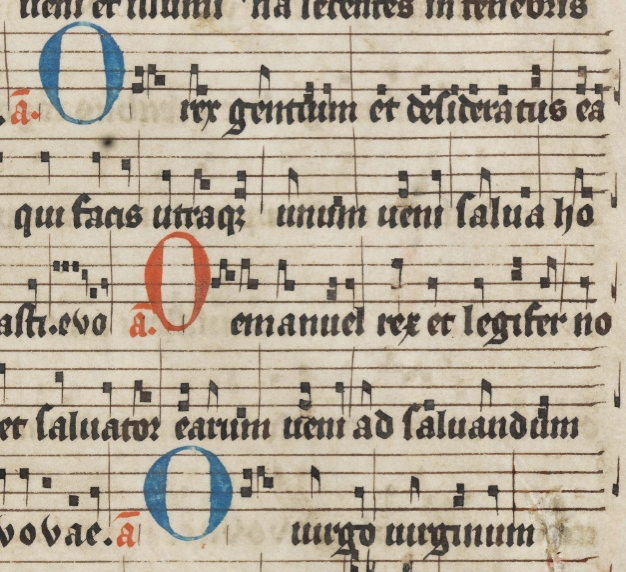 ueni et illumi na sedentes in tenebris
ā. O rex gentium et desideratus ea
qui facis utraqꝫ unum ueni salua hō
asti.evo ā. O emanuel rex et legifer no
et saluator earum ueni ad saluandum
vovae. ā O uirgo uirginum